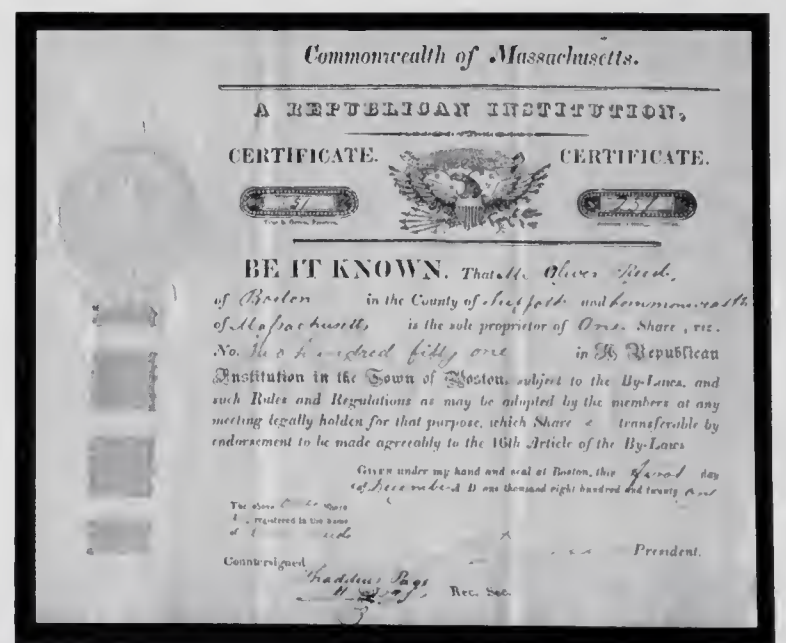 Commonwealth of Massachusetts.
A REPUBLICAN INSTITUTION,
CERTIFICATE. CERTIFICATE.
51 251
BE IT KNOWN, That Mr Oliver Reed,
of Boston in the County of Suffolk and Commonwealth
of Massachusetts is the sole proprietor of One Share, viz.
No. Two hundred fifty one in A Republican
Institution in the Town of Boston, subject to the By-Laws, and
such Rules and Regulations as may be adopted by the members at any
meeting legally holden for that purpose, which Share transferable by
endorsement to be made agreeably to the 16th Article of the By-Laws
Given under my hand and seal at Boston, this first day
of December A D one thousand eight hundred and twenty one
The above Share
registered in the name
of
President.
Countersigned
Thaddeus Page
Rec. Sec.